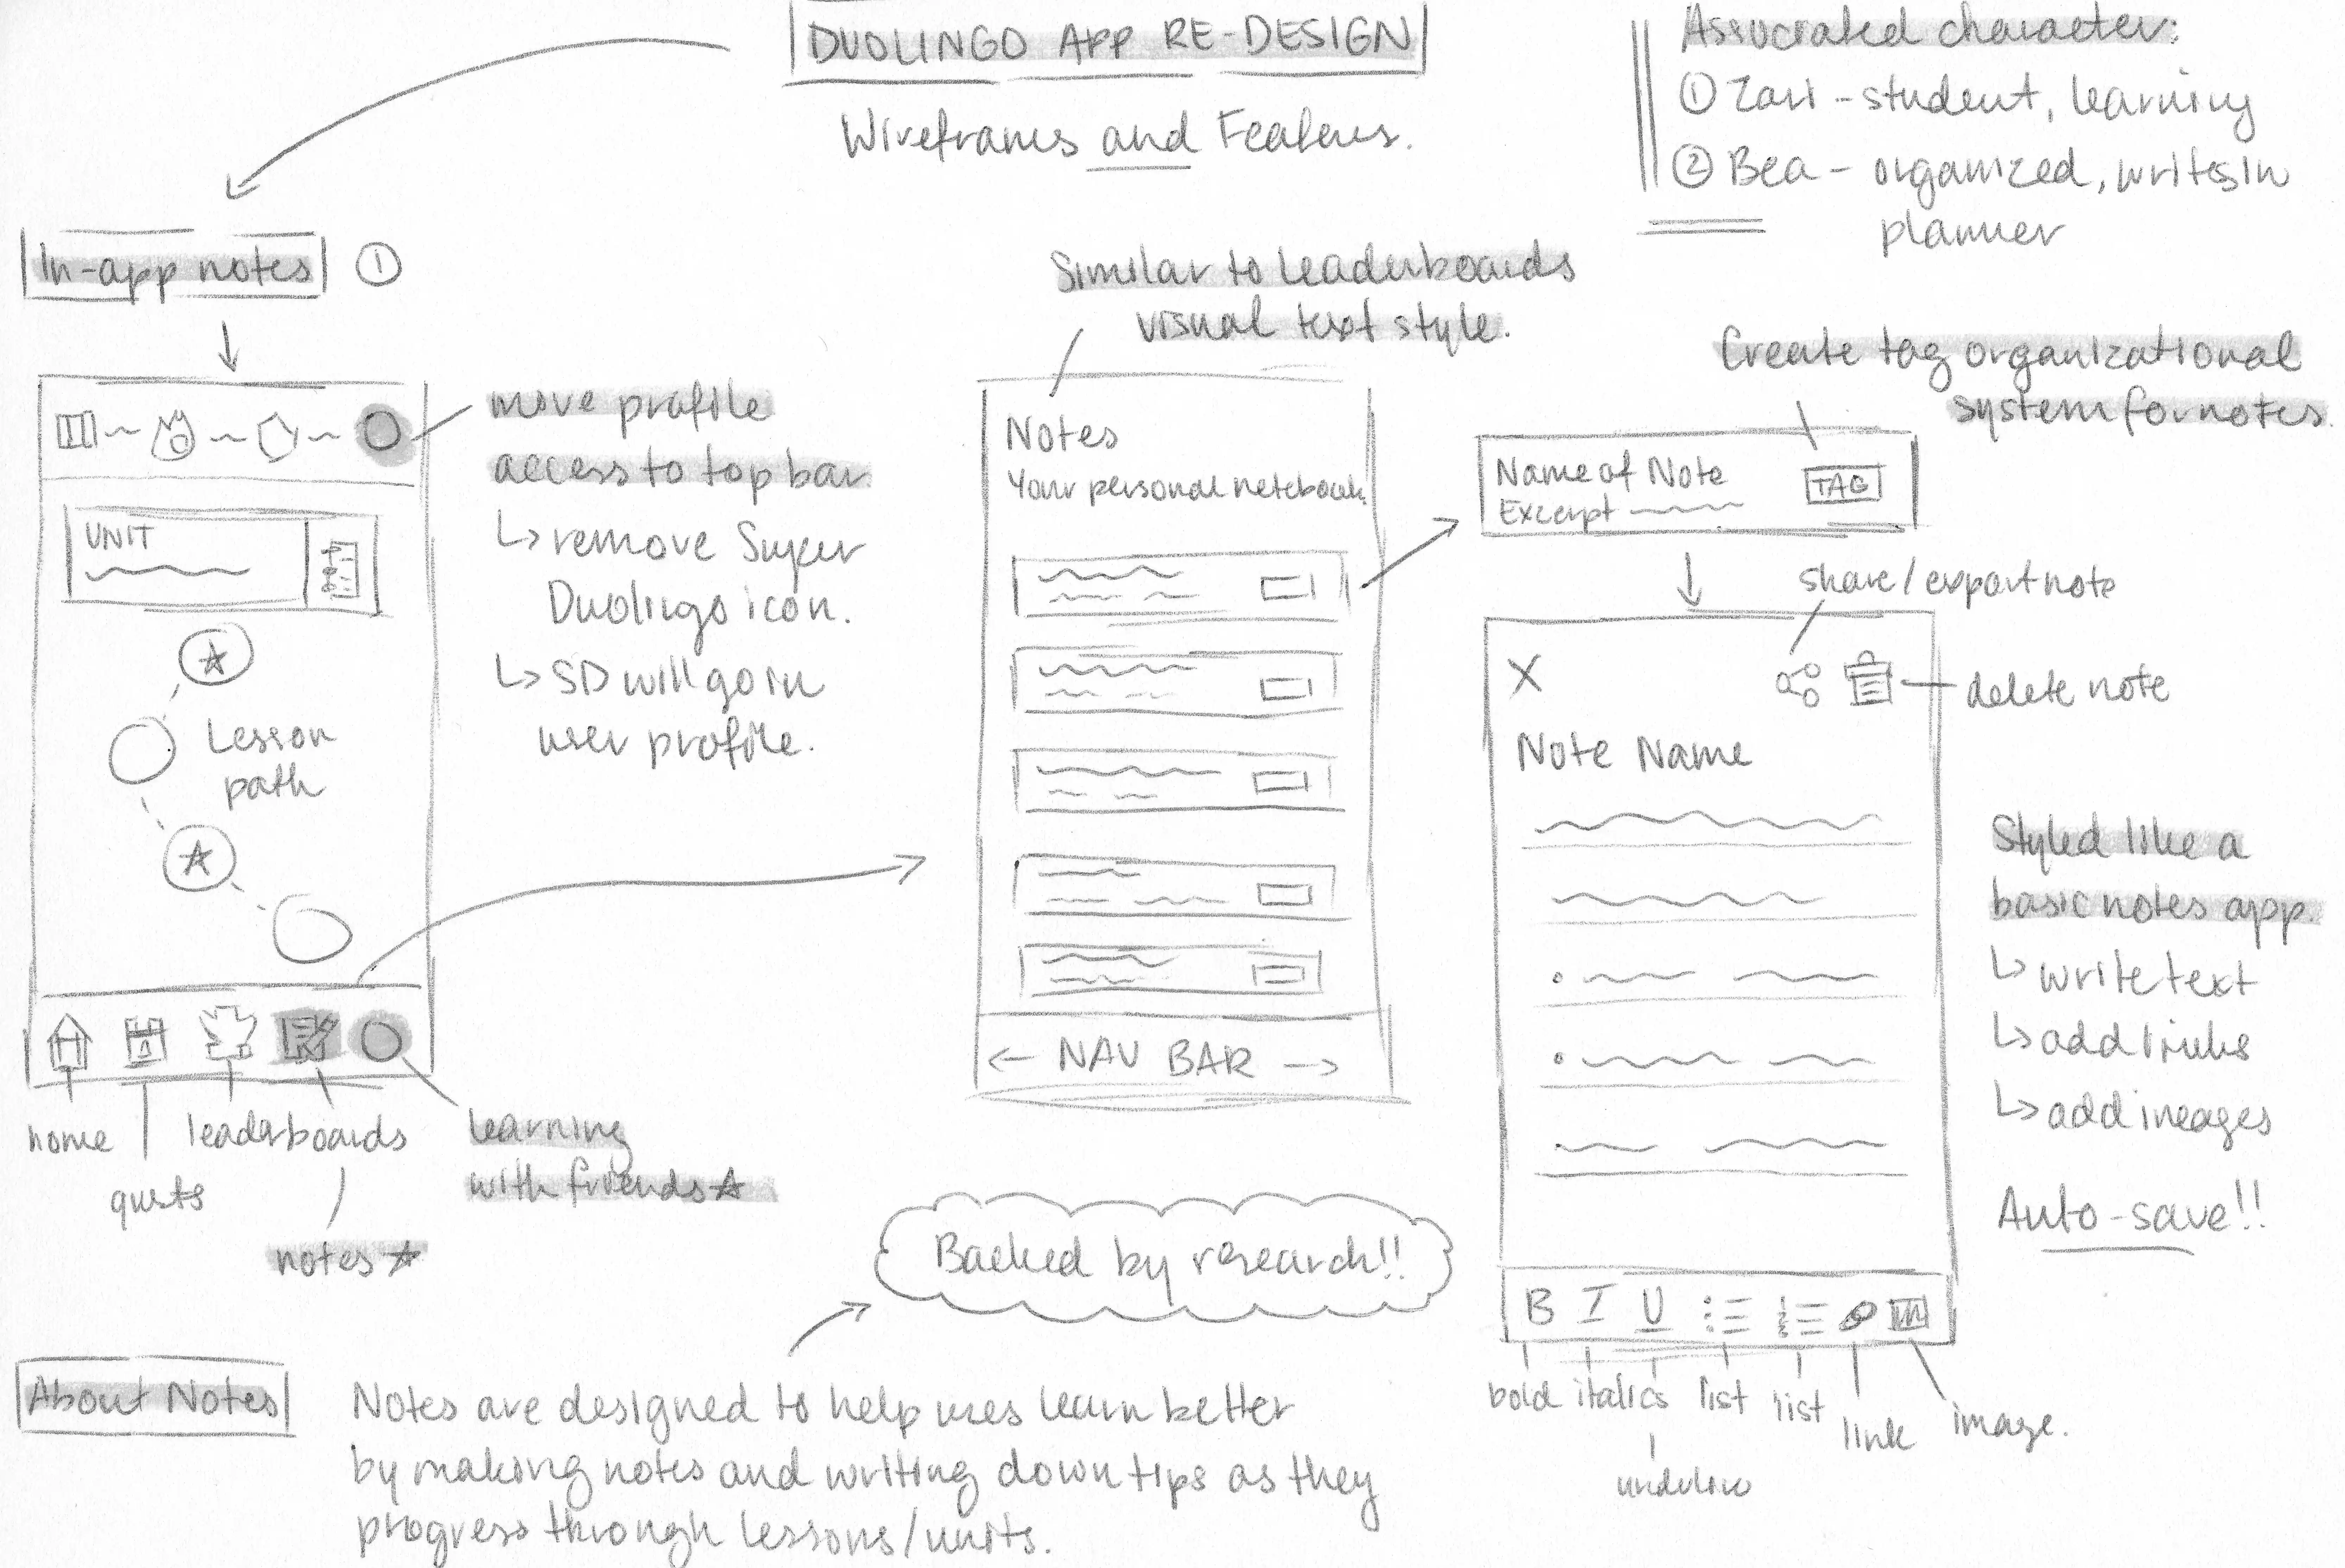 DUOLINGO APP RE-DESIGN
Wireframes and Features.
Associated character:
① Zari - student, learning
② Bea - organized, writes in
planner
In-app notes ①
move profile
access to top bar
↳ remove Super
Duolingo icon.
↳ SD will go in
user profile.
UNIT
Lesson
path
home
quests
leaderboards
notes ☆
learning
with friends ☆
Similar to leaderboards
visual text style.
Notes
Your personal notebook.
← NAV BAR →
Create tag organizational
system for notes.
Name of Note
TAG
Excerpt
share/export note
X
delete note
Note Name
Styled like a
basic notes app.
↳ write text
↳ add links
↳ add images
Auto-save!!
B I U
bold italics list list link image.
underline
Backed by research!!
About Notes
Notes are designed to help uses learn better
by making notes and writing down tips as they
progress through lessons/units.